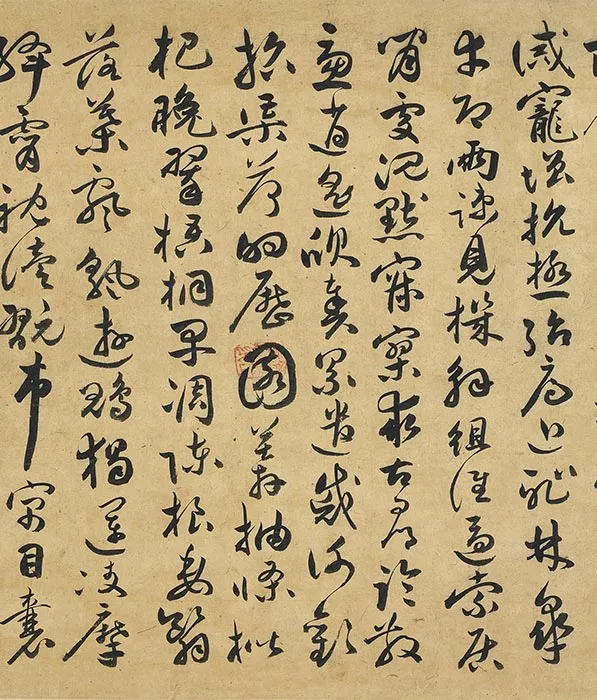 誡寵增抗極殆辱近耻林皋
幸即兩疎見機解組誰逼索居
閑處沉默寂寥求古尋論散
慮逍遙欣奏累遣慼謝歡
招渠荷的歷園莽抽條枇
杷晚翠梧桐早凋陳根委翳
落葉飄颻遊鵾獨運凌摩
絳霄耽讀翫市寓目囊